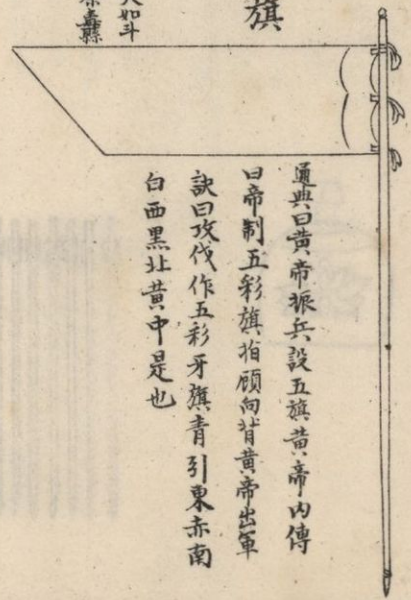 旗
通典曰黄帝振兵設五旗黄帝内傳
曰帝制五彩旗指顧向背黄帝出軍
訣曰攻伐作五彩牙旗青引東赤南
白西黒北黄中是也
大如斗